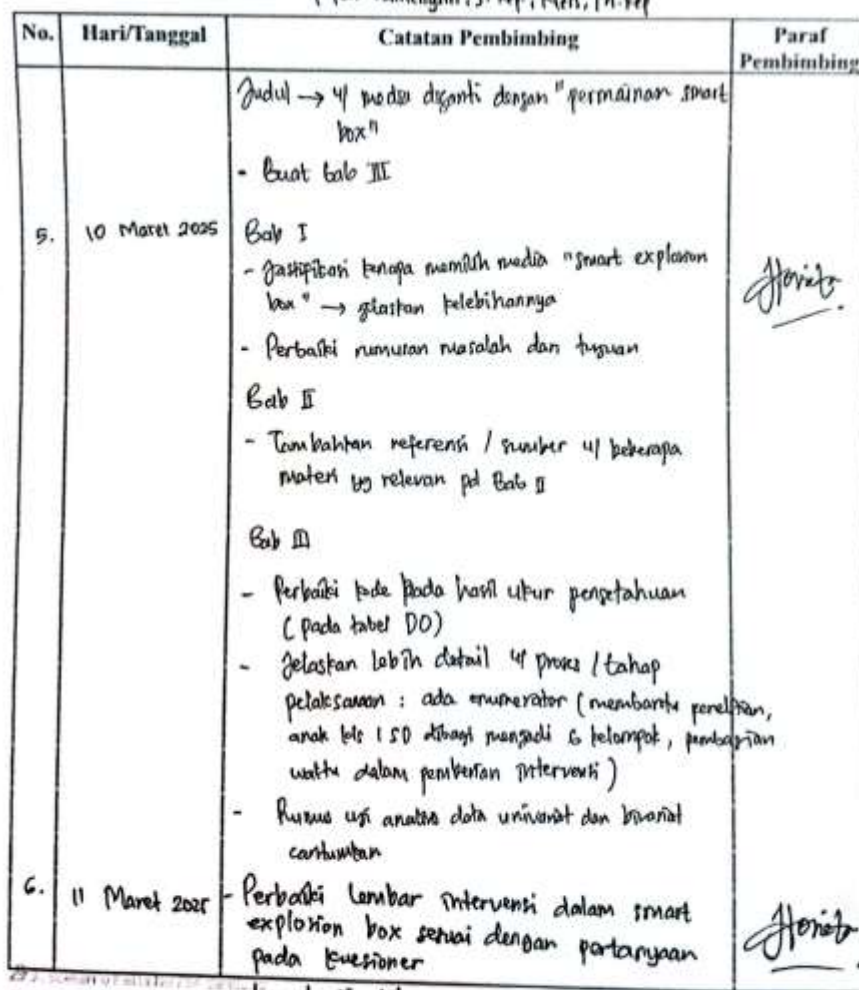 No. Hari/Tanggal Catatan Pembimbing Paraf Pembimbing
Judul → u/ media diganti dengan "permainan smart
box"
- Buat bab III
5. 10 Maret 2025 Bab I
- Jastifikasi kenapa memilih media "smart explosion
box" → jelaskan kelebihannya
- Perbaiki rumusan masalah dan tujuan
Bab II
- Tambahkan referensi / sumber u/ beberapa
materi yg relevan pd Bab II
Bab III
- Perbaiki kode pada hasil ukur pengetahuan
(pada tabel DO)
- Jelaskan lebih detail u/ proses / tahap
pelaksanaan : ada enumerator (membantu penelitian,
anak kls 1 SD dibagi menjadi 6 kelompok, pembagian
waktu dalam pemberian intervensi)
- Rumus uji analisa data univariat dan bivariat
cantumkan
6. 11 Maret 2025 - Perbaiki lembar intervensi dalam smart
explosion box sesuai dengan pertanyaan
pada kuesioner